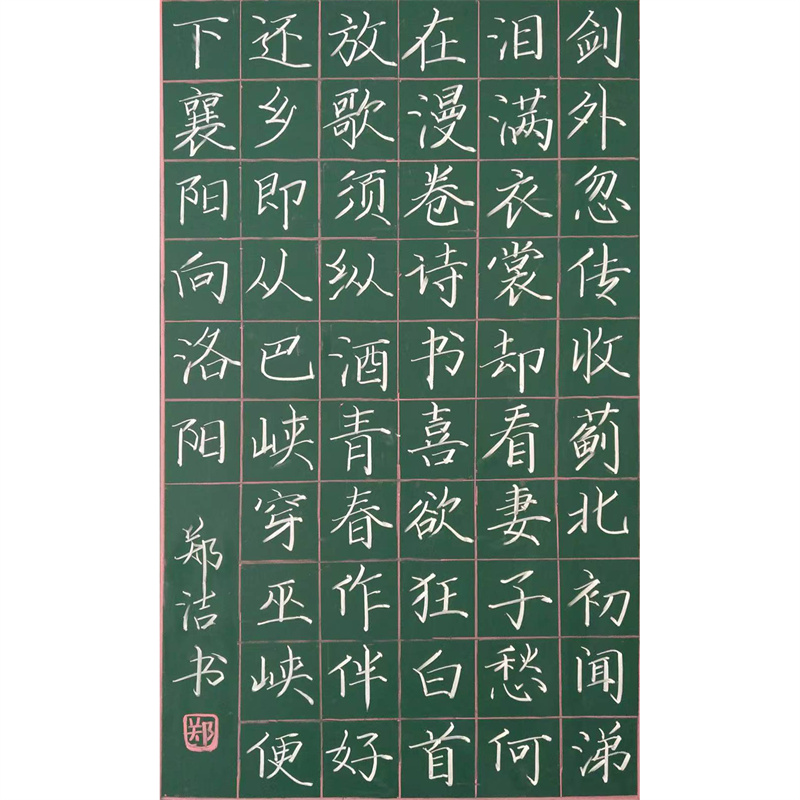 剑外忽传收蓟北初闻涕
泪满衣裳却看妻子愁何
在漫卷诗书喜欲狂白首
放歌须纵酒青春作伴好
还乡即从巴峡穿巫峡便
下襄阳向洛阳
郑洁书
郑